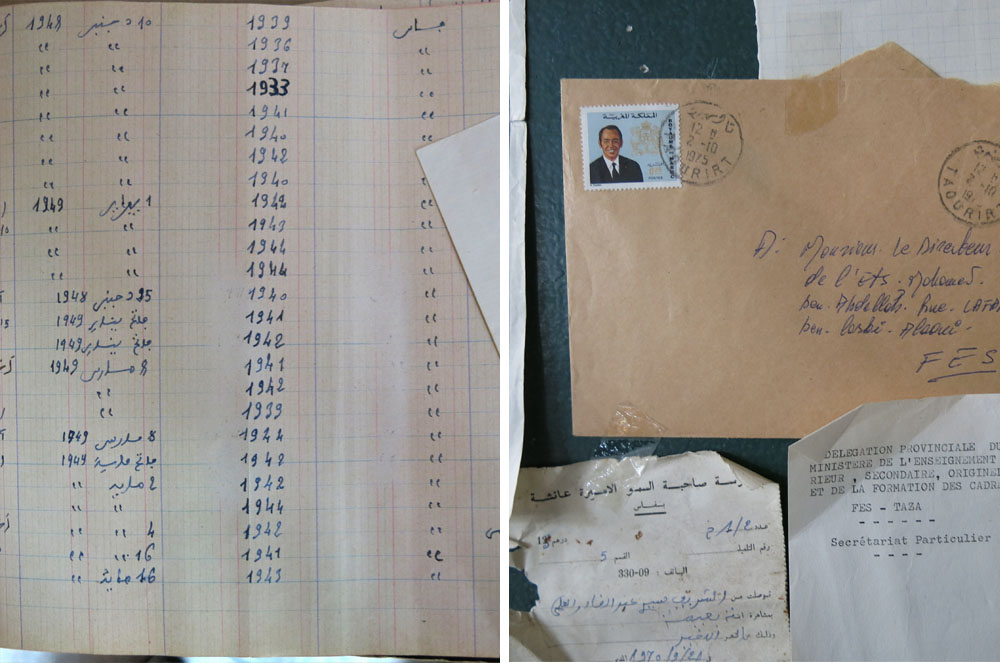 10 دجنبر 1948 1939 فاس
" " 1936 "
" " 1937 "
" " 1933 "
" " 1941 "
" " 1940 "
" " 1942 "
" " 1940 "
1 يبراير 1949 1942 "
" " 1943 "
" " 1944 "
" " 1944 "
25 دجنبر 1948 1940 "
فاتح يناير 1949 1941 "
فاتح يناير 1949 1942 "
8 مارس 1949 1941 "
" 1942 "
" 1939 "
8 مارس 1949 1944 "
فاتح 1949 1942 "
2 " 1942 "
" " 1944 "
4 " " 1942 "
16 " " 1941 "
16 " 1943 "
المملكة المغربية
12 H
2-10
1975
TAOURIRT
12 H
TAOURIRT
A: Monsieur. Le Directeur
de l'ETS. Mohamed.
ben. Abdellah. Rue.
ben. Larbi. Alaoui.
FES
DELEGATION PROVINCIALE DU
MINISTERE DE L'ENSEIGNEMENT
RIEUR, SECONDAIRE, ORIGINEL
ET DE LA FORMATION DES CADRE
FES - TAZA
- - - - - -
Secrétariat Particulier
- - - -
صاحبة السمو الاميرة عائشة
بفاس
عدد
رقم التلميذ
القسم 5
الهاتف: 09-330
توصلت من الشريف عبد القادر
وذلك